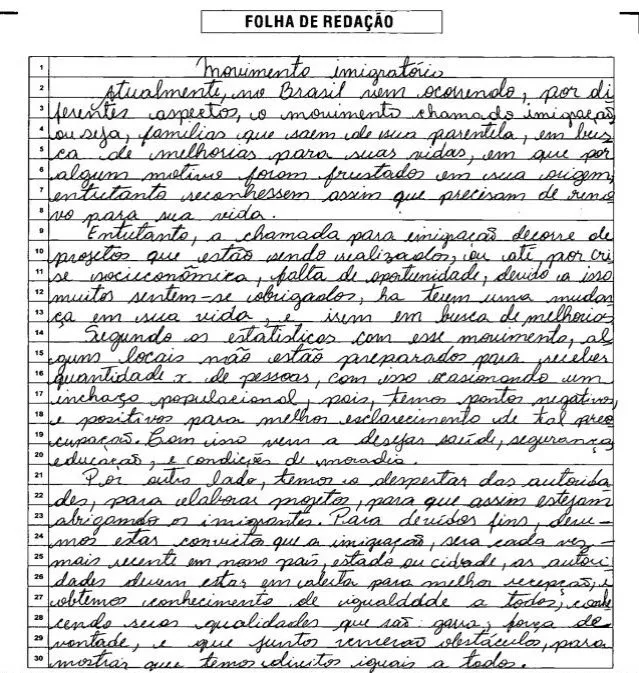 FOLHA DE REDAÇÃO
1 Movimento imigratório
2 Atualmente, no Brasil vem ocorrendo, por di
3 ferentes aspectos, o movimento chamado imigração
4 ou seja, famílias que saem de sua parentela, em bus
5 ca de melhorias para suas vidas, em que por
6 algum motivo foram frustados em sua origem,
7 entretanto reconhessem assim que precisam de reno
8 vo para sua vida.
9 Entretanto, a chamada para imigração decorre de
10 projetos que estão sendo realizados, ou até, por cri
11 se socioeconômica, falta de oportunidade, devido a isso
12 muitos sentem-se obrigados, ha terem uma mudan
13 ça em sua vida, e irem em busca de melhorias
14 Segundo os estatísticos com esse movimento, al
15 guns locais não estão preparados para receber
16 quantidade x de pessoas, com isso ocasionando um
17 inchaço populacional, pois, temos pontos negativos,
18 e positivos para melhor esclarecimento de tal preo
19 cupação. Com isso vem a desejar saúde, segurança,
20 educação, e condições de moradia.
21 Por outro lado, temos o despertar das autorida
22 des, para elaborar projetos, para que assim estejam
23 abrigando os imigrantes. Para devidos fins, deve-
24 mos estar convictos que a imigração, será cada vez
25 mais recente em nosso país, estado ou cidade, as autori
26 dades devem estar em alerta para melhor recepção, e
27 obtemos conhecimento de igualdade a todos, conhe
28 cendo seus qualidades que são garra, força de
29 vontade, e que juntos venceram obstáculos, para
30 mostrar que temos direitos iguais a todos.